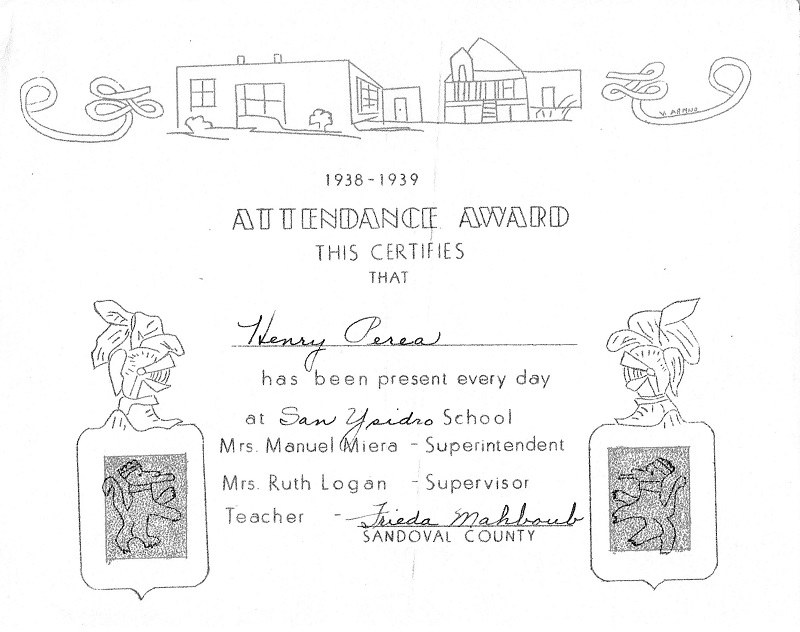 V. ARMIJO
1938-1939
ATTENDANCE AWARD
THIS CERTIFIES
THAT
Henry Perea
has been present every day
at San Ysidro School
Mrs. Manuel Miera - Superintendent
Mrs. Ruth Logan - Supervisor
Teacher - Frieda Mahboub
SANDOVAL COUNTY